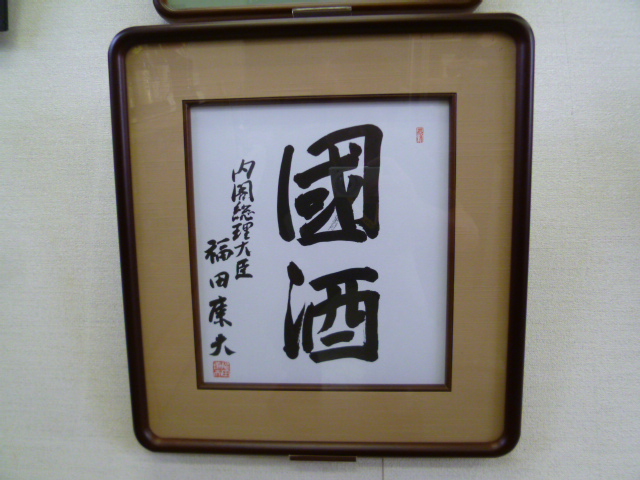 國酒
内閣総理大臣
福田康夫